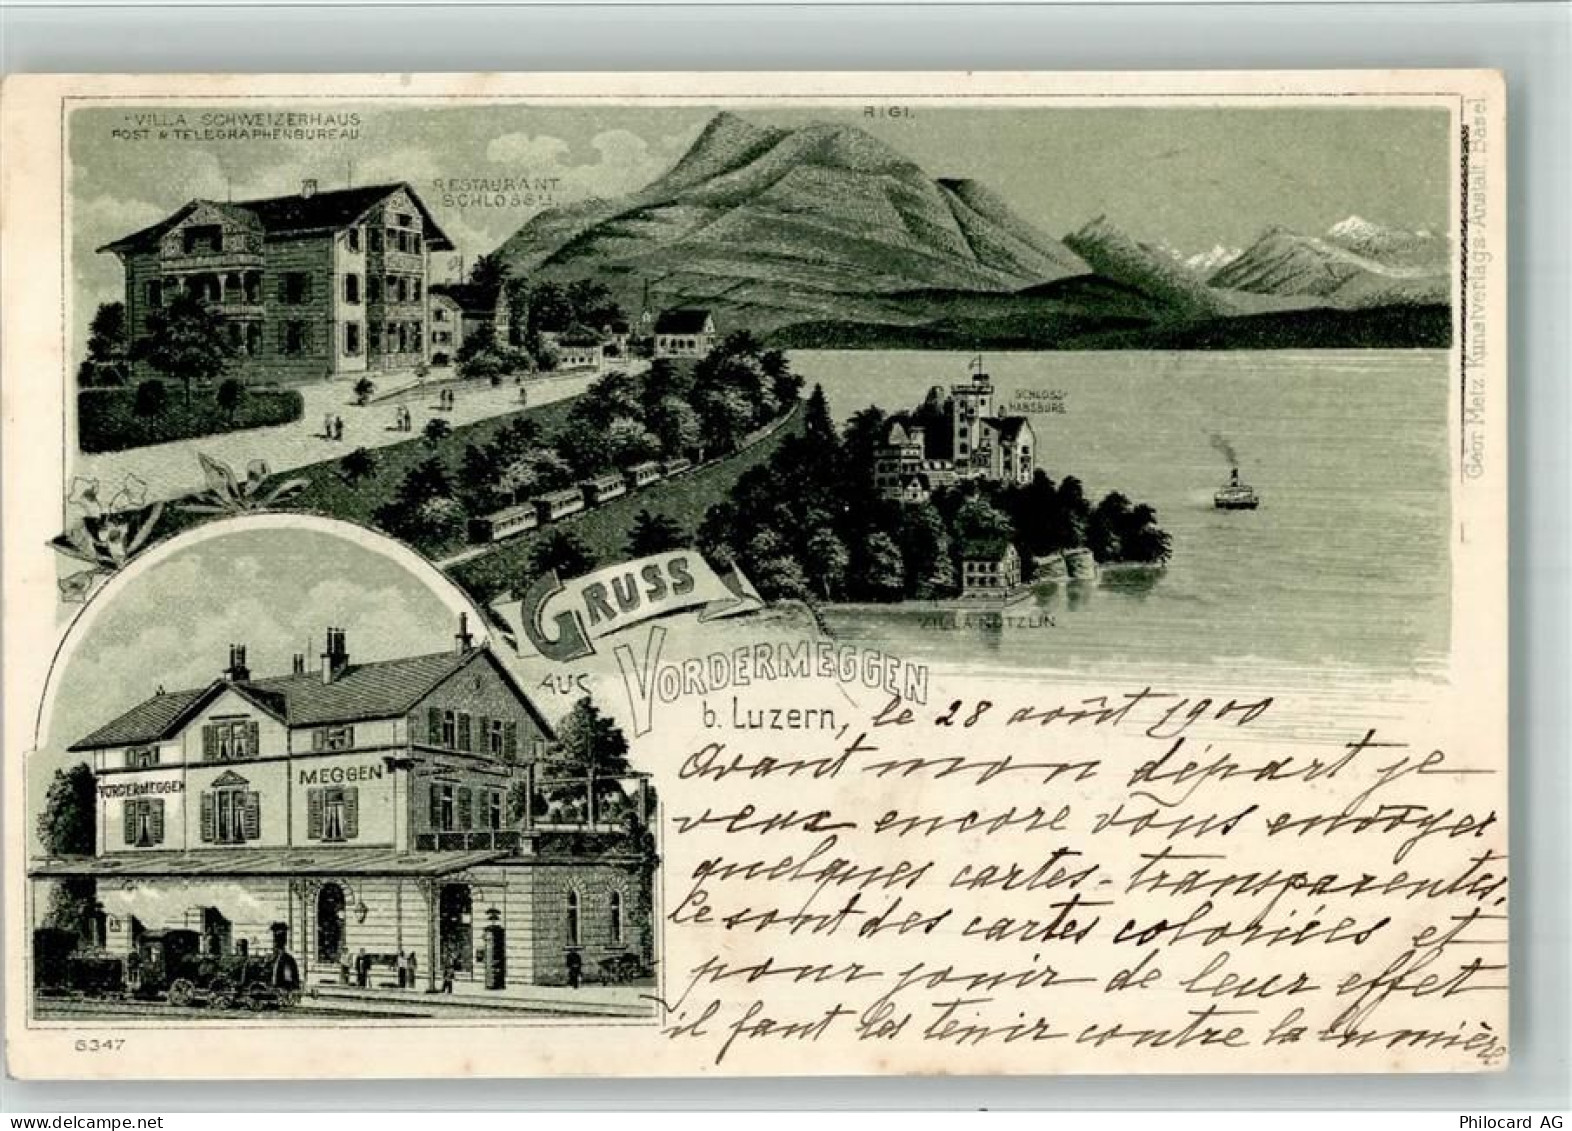 VILLA SCHWEIZERHAUS
POST & TELEGRAPHENBUREAU.
RESTAURANT
SCHLÖSSLI.
RIGI.
SCHLOSS
HABSBURG
VILLA NÖTZLIN
Geor Metz, Kunstverlags-Anstalt, Basel.
GRUSS
AUS
VORDERMEGGEN
b. Luzern, le 28 août 1900
Avant mon départ je
veux encore vous envoyer
quelques cartes-transparentes.
Ce sont des cartes coloriées et
pour jouir de leur effet
il faut les tenir contre la lumière
VORDERMEGGEN
MEGGEN
6347
Philocard AG